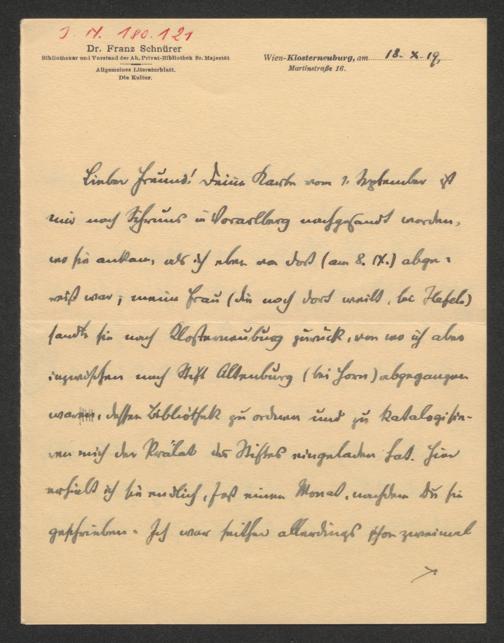 I. N. 180.121
Dr. Franz Schnürer
Bibliothekar und Vorstand der Ah. Privat-Bibliothek Sr. Majestät
Allgemeines Literaturblatt.
Die Kultur.
Wien-Klosterneuburg, am 18. X. 19,
Martinstraße 16.
Lieber Freund! Deine Karte vom 1. September ist
mir nach Schruns in Vorarlberg nachgesandt worden,
wo sie ankam, als ich eben von dort (am 8. IX.) abge-
reist war; meine Frau (die noch dort weilt, bei Hefels)
sandte sie nach Klosterneuburg zurück, von wo ich aber
inzwischen nach Stift Altenburg (bei Horn) abgegangen
war, dessen Bibliothek zu ordnen und zu katalogisie-
ren mich der Prälat des Stiftes eingeladen hat. Hier
erhielt ich sie endlich, fast einen Monat, nachdem Du sie
geschrieben. Ich war seither allerdings schon zweimal